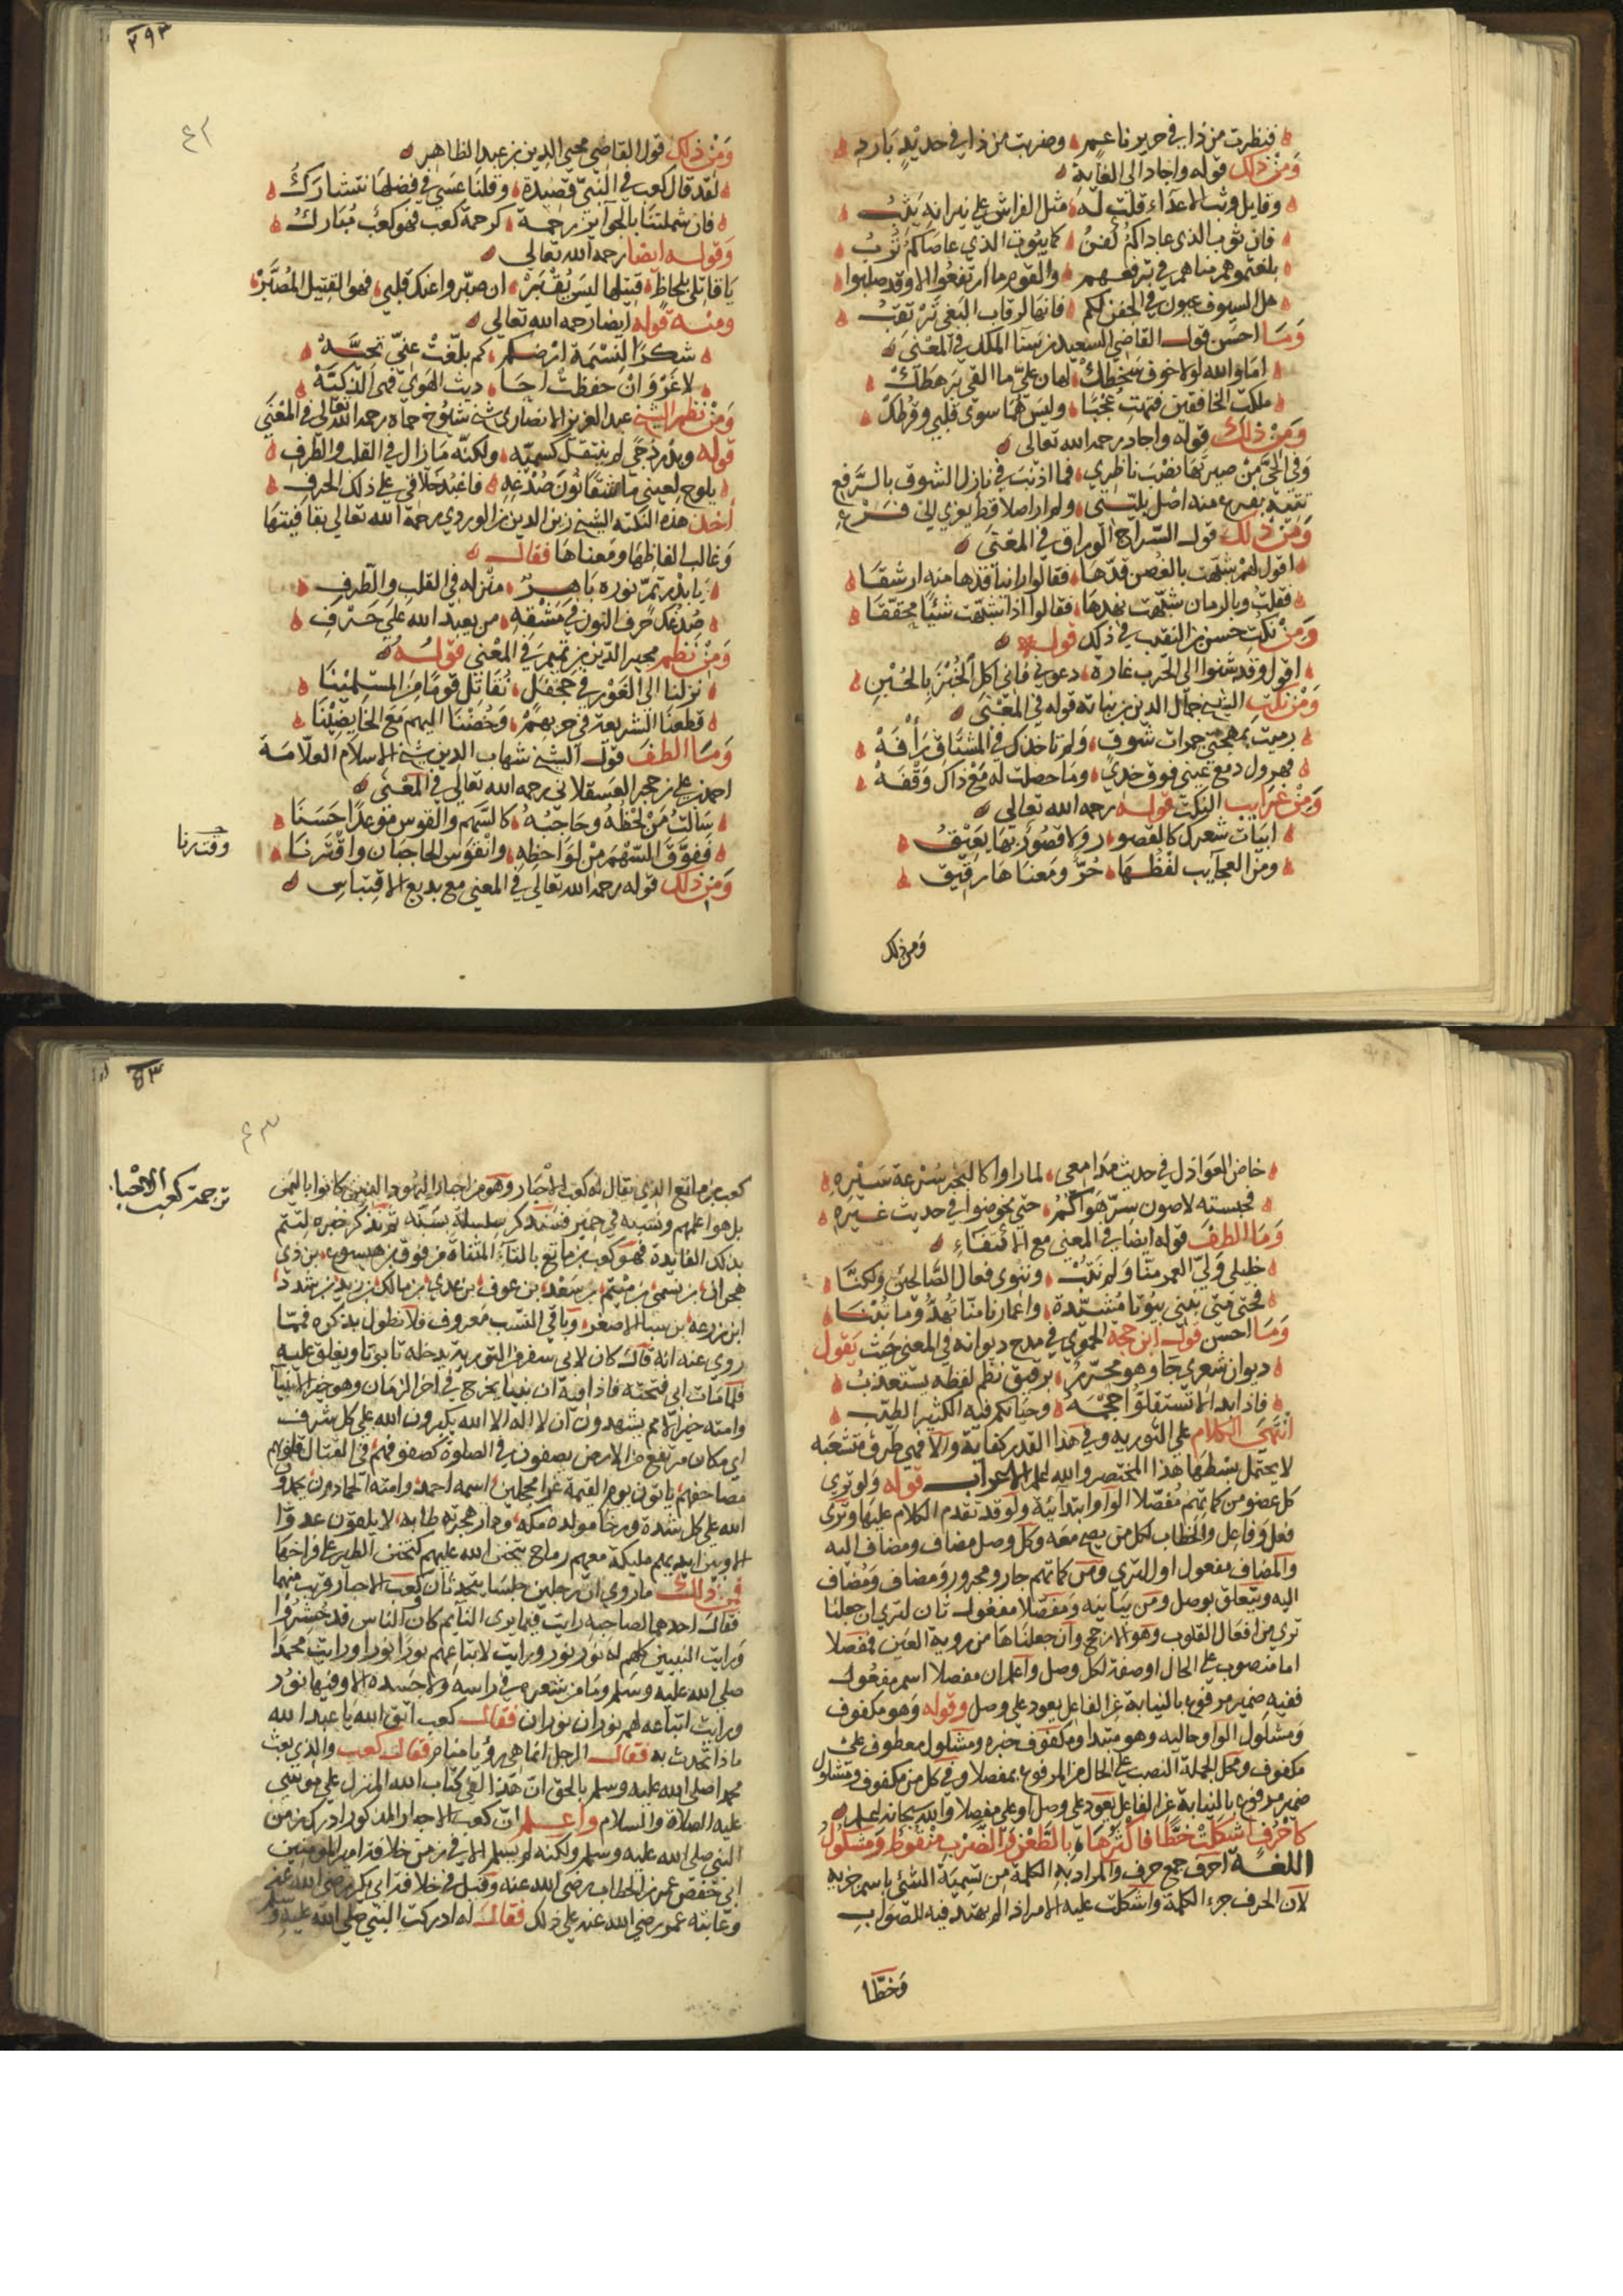 فنظرت من ذا في حرير ناعم وضربت من ذا في حديد بارد
ومن ذلك قوله واجاد الى الغاية
وقايل وثب الاعداء قلت له مثل الفراش على نيرانه يثب
فان ثوب الذي عاداكم كفن كما بيوت الذي عاصاكم ترب
وما احسن قول القاضي السعيد بن سنا الملك في المعنى
اما والله لولا خوف سخطك لهان علي ما القى برهطك
ملكت الخافقين فتهت عجبا وليس هما سوى قلبي وقرطك
ومن ذلك قوله واجاد رحمه الله تعالى
ومن ذلك قول السراج الوراق في المعنى
اقول لهم شبهت بالغصن قدها فقالوا راينا قدها منه ارشقا
فقلت وبالرمان شبهت نهدها فقالوا اذا شبهت شيئا محققا
ومن نكت حسن بن النقيب في ذلك قوله
اقول وقد شنوا الى الحرب غارة دعوني فاني اكل الخبز بالجبن
ومن نكت الشيخ جمال الدين بن نباتة قوله في المعنى
رميت بمهجتي جمرات شوق ولم تاخذك في المشتاق رافه
فهرول دمع عيني فوق خدي وما حصلت له مع ذاك وقفه
ومن غرايب النكت قوله رحمه الله تعالى
ابيات شعرك كالقصور ولا قصور بها يعيق
ومن العجآيب لفظها حر ومعناها رقيق
ومن ذلك
٢٩٣
٤٢
ومن ذلك قول القاضي محيي الدين بن عبد الظاهر
لقد قال كعب في النبي قصيدة وقلنا عسى في فضلها نتشارك
فان شملتنا بالجوآيز رحمة كرحمة كعب فهو كعب مبارك
وقوله ايضا رحمه الله تعالى
يا قاتلي بلحاظ قتيلها ليس يقبر ان صبروا عنك قلبي فهو القتيل المصبر
ومنه قوله ايضا رحمه الله تعالى
شكرا لنسمة ارضكم كم بلغت عني تحيه
لا غرو ان حفظت احاديث الهوى فهى الذكيه
ومن نظم الشيخ عبد العزيز الانصاري شيخ شيوخ حماه رحمه الله تعالى في المعنى
اخذ هذه النكته الشيخ زين الدين بن الوردي رحمه الله تعالى بقافيتها
وغالب الفاظها ومعناها فقال
يا بدر تم نوره باهر منزله في القلب والطرف
صدغك حرف النون في مشقه من يعبد الله على حرف
ومن نظم مجير الدين بن تميم في المعنى قوله
نزلنا الى الغور في جحفل نقاتل قوما من المسلمينا
قطعنا الشريعة في حربهم وخضنا اليهم مع الخايضينا
وما الطف قول الشيخ شهاب الدين شيخ الاسلام العلامة
احمد بن علي بن حجر العسقلاني رحمه الله تعالى في المعنى
سالت من لحظه وحاجبه كالسهم والقوس موعدا حسنا
ففوق السهم من لواحظه وانقوس الحاجبان واقترنا
ومن ذلك قوله رحمه الله تعالى في المعنى مع بديع الاقتباس
خاض العواذل في حديث مدامعي لما راوا كالبحر سرعة سيره
فحبسته لاصون سر هواكم حتى يخوضوا في حديث غيره
وما الطف قوله ايضا في المعنى مع الاكتفاء
خليلي ولى العمر منا ولم نتب وننوي فعال الصالحين ولكنا
فحتى متى نبني بيوتا مشيدة واعمارنا منا تهد وما تبنا
وما احسن قول ابن حجة الحموي في مدح ديوانه في المعنى حيث يقول
ديوان شعري جا وهو محرر برقيق نظم لفظه يستعذب
انتهى الكلام على التوريه وفي هذا القدر كفاية والا فهى طرق متشعبه
لا يحتمل بسطها هذا المختصر والله اعلم الاعراب قوله ولو تري
كل عضو من كماتهم مفصلا الواو ابتدائية ولو قد تقدم الكلام عليها وترى
فعل وفاعل والخطاب لكل من يصح معه وكل وصل مضاف ومضاف اليه
والمضاف مفعول اول لترى ومن كماتهم جار ومجرور ومضاف ومضاف
اليه ويتعلق بوصل ومن بيانيه ومفصلا مفعول ثان لترى ان جعلنا
ترى من افعال القلوب وهو الارجح وان جعلناها من روية العين فمفصلا
اما منصوب على الحال او صفة لكل وصل واعلم ان مفصلا اسم مفعول
ففيه ضمير مرفوع بالنيابة عن الفاعل يعود على وصل وقوله وهو مكفوف
ومشلول الواو حاليه وهو مبتدا ومكفوف خبره ومشلول معطوف على
مكفوف ومحل الجملة النصب على الحال من المرفوع بمفصلا وفي كل من مكفوف ومشلول
ضمير مرفوع بالنيابة عن الفاعل يعود على وصل او على مفصلا والله سبحانه اعلم
كاحرف اشكلت خطا فاكثرها بالطعن والضرب منقوط ومشكول
اللغة احرف جمع حرف والمراد به الكلمة من تسمية الشئ باسم جزيه
لان الحرف جزء الكلمة واشكلت عليه الامر اذا لم يهتد فيه للصواب
وخطا
ترجمة كعب الاحبار
كعب بن ماتع الذي يقال له كعب الاحبار وهو من احبار اليهود الذين كانوا باليمن
بل هو اعلمهم ونسبه في حمير فسنذكر سلسلة نسبه ثم نذكر خبره لتتم
بذلك الفايدة فهو كعب بن ماتع بالتآء المثناة من فوق بن هيسوع بن ذي
ابن زرعة بن سبا الاصغر وباقي النسب معروف فلا نطول بذكره فمما
روى عنه انه قال كان لابي سفر من التورية يدخله تابوتا ويغلق عليه
فلما مات ابي فتحته فاذا فيه ان نبيا يخرج في اخر الزمان وهو خير الانبيا
وامته خير الامم يشهدون ان لا اله الا الله يكبرون الله على كل شرف
اي مكان مرتفع من الارض يصفون في الصلوة كصفوفهم في القتال قلوبهم
مصاحفهم ياتون يوم القيمة غرا محجلين اسمه احمد وامته الحمادون يحمدون
الله على كل شدة ورخا مولده مكه ودار هجرته طابه لا يلقون عدوا
الا وبين ايديهم مليكة معهم رماح يتحنن الله عليهم كتحنن الطير على فراخها
فمن ذلك ما روي ان رجلين جلسا يتحدثان كعب الاحبار قريب منهما
فقال احدهما لصاحبه رايت فيما يرى النآيم كان الناس قد حشروا
ورايت النبيين كلهم له نور نور ورايت لاتباعهم نورا نورا ورايت محمدا
صلى الله عليه وسلم وما من شعره في راسه ولا جسده الا وفيها نور
ورايت اتباعه لهم نوران نوران فقال كعب اتق الله يا عبد الله
ماذا تحدث به فقال الرجل انما هي رؤيا منام فقال كعب والذي بعث
محمدا صلى الله عليه وسلم بالحق ان هذا لفي كتاب الله المنزل على موسى
عليه الصلاة والسلام واعلم ان كعب الاحبار المذكور ادرك زمن
النبي صلى الله عليه وسلم ولكنه لم يسلم الا في زمن خلافة امير المومنين
ابي حفص عمر بن الخطاب رضي الله عنه وقيل في خلافة ابي بكر رضي الله عنه
وعاتبه عمر رضي الله عنه على ذلك فقال له ادركت النبي صلى الله عليه وسلم